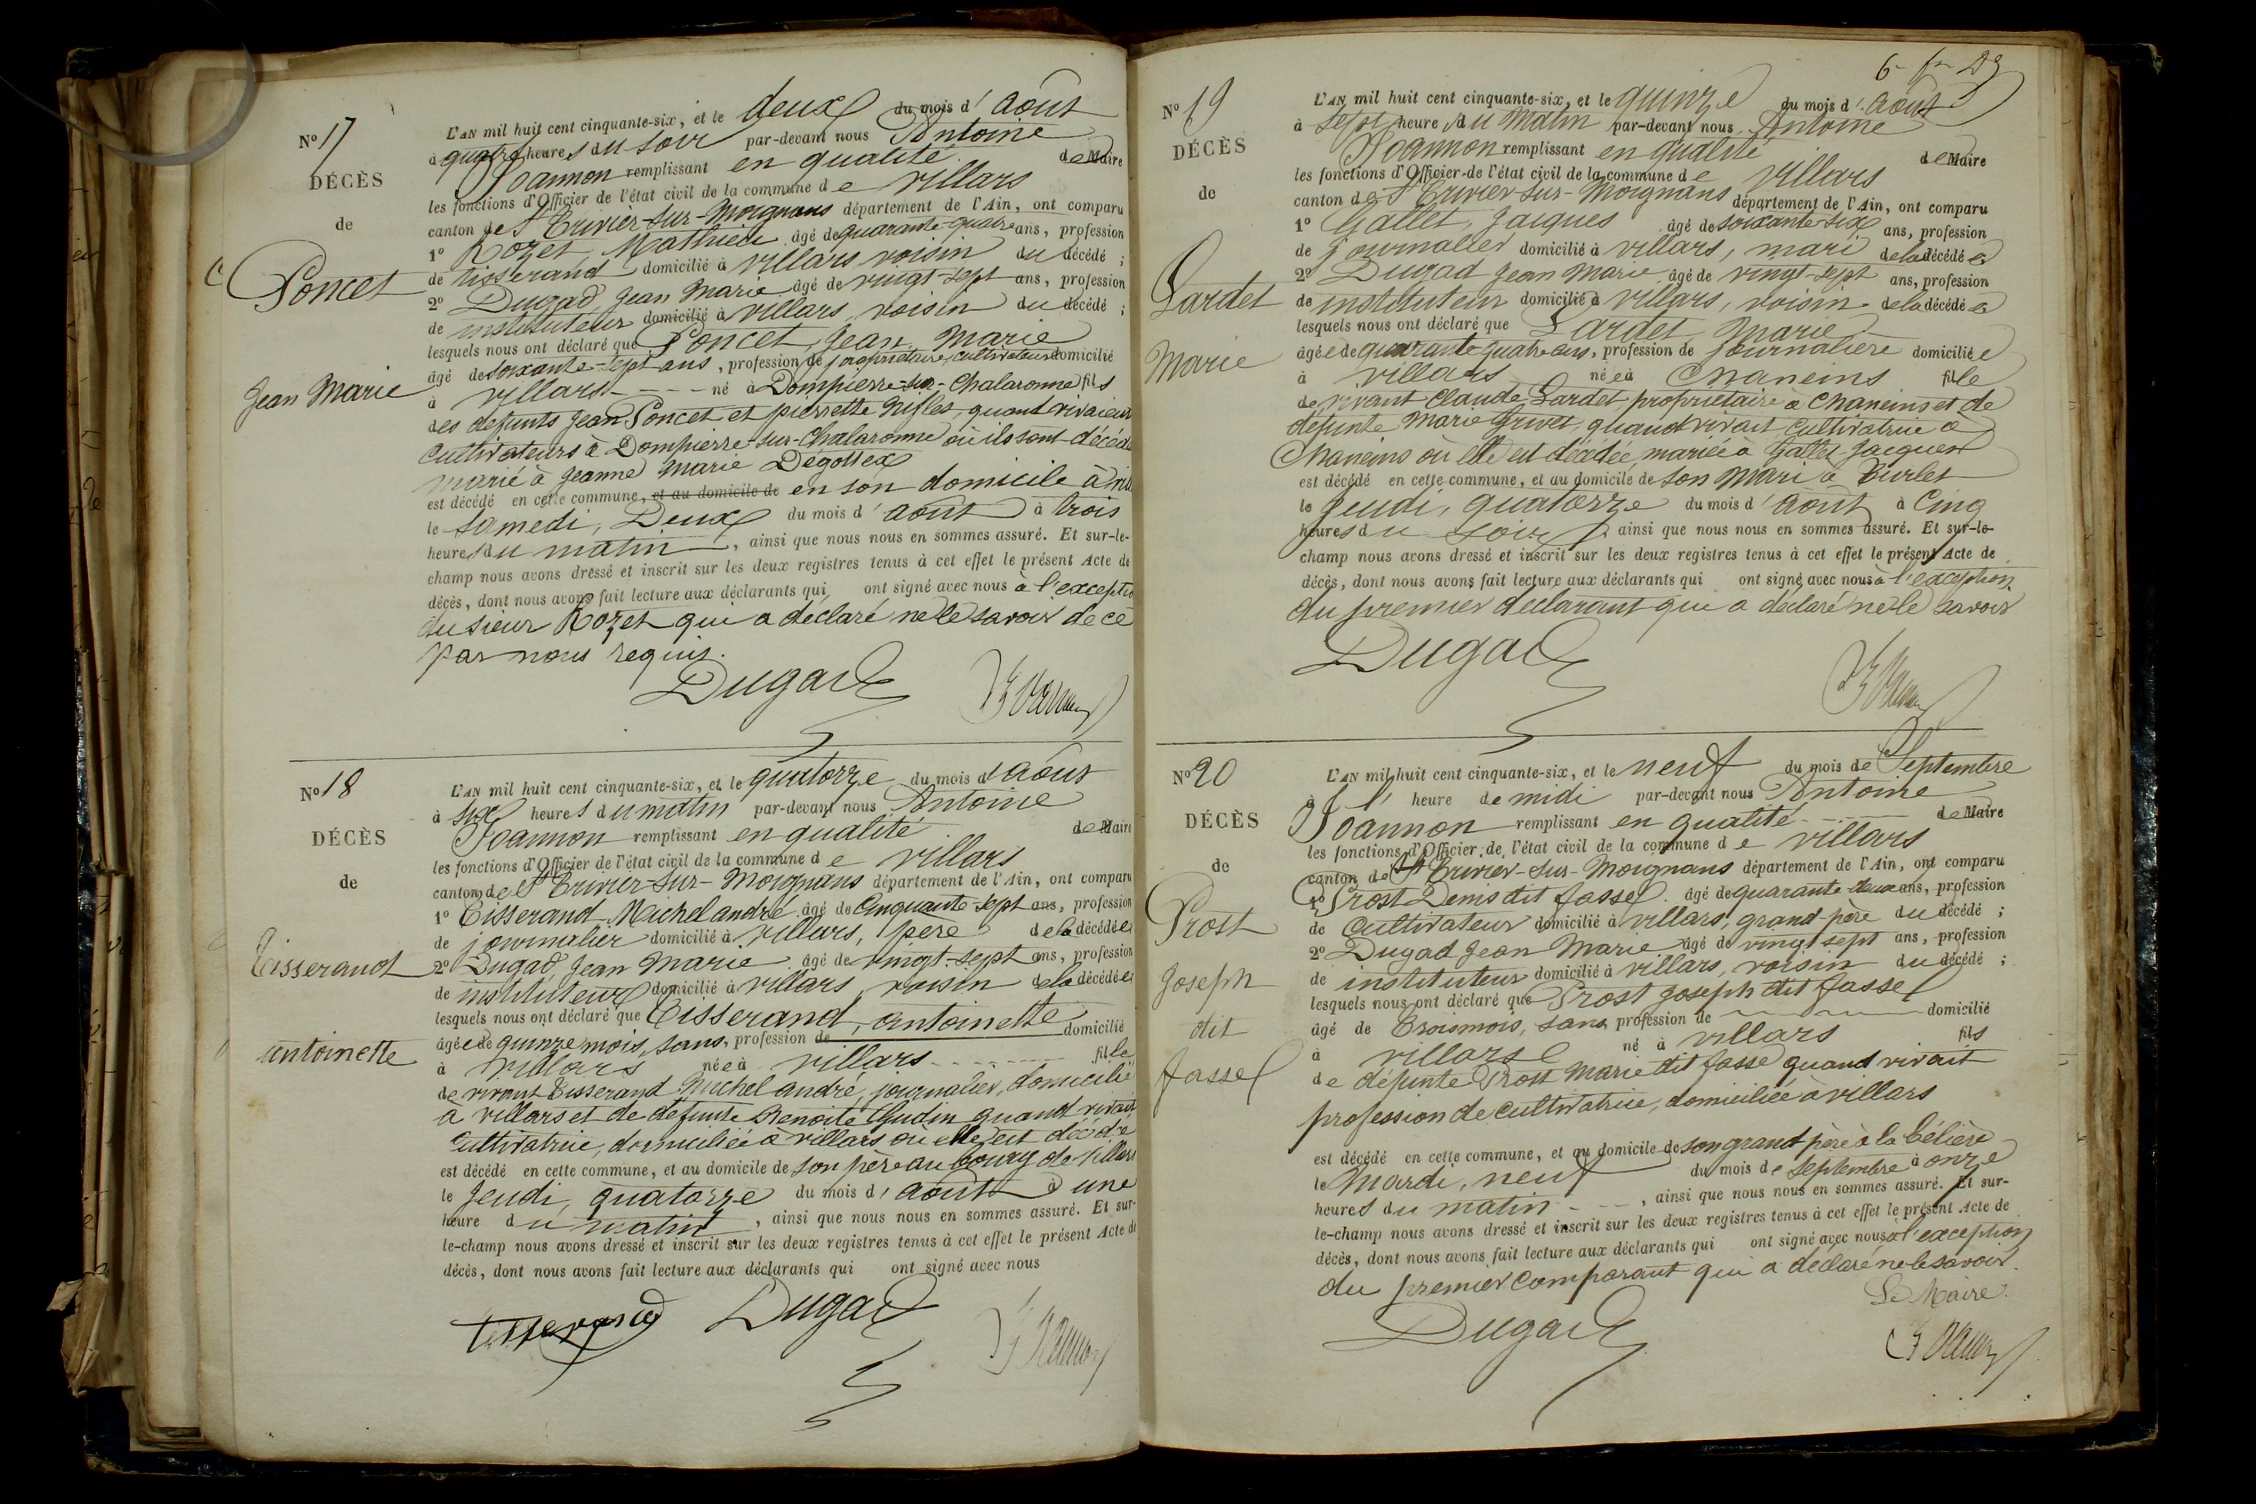 No 17
DÉCÈS
de
Poncet
Jean Marie
L'AN mil huit cent cinquante-six, et le deux du mois d'août
à quatre heures du soir par-devant nous Antoine
Joannon remplissant en qualité de Maire
les fonctions d'Officier de l'état civil de la commune de Villars
canton de St Trivier-sur-Moignans département de l'Ain, ont comparu
1º Rozet Mathieu âgé de quarante-quatre ans, profession
de tisserand domicilié à Villars voisin du décédé ;
2º Dugad Jean Marie âgé de vingt-sept ans, profession
de instituteur domicilié à Villars, voisin du décédé ;
lesquels nous ont déclaré que Poncet, Jean Marie
âgé de soixante-sept ans, profession de propriétaire, cultivateur domicilié
à Villars né à Dompierre-sur-Chalaronne fils
des défunts Jean Poncet et pierrette Nifles, quand vivaient
cultivateurs à Dompierre-sur-Chalaronne où ils sont décédés
marié à Jeanne Marie Dégottex
est décédé en cette commune, et au domicile de en son domicile à
le samedi, Deux du mois d'août à trois
heures du matin, ainsi que nous nous en sommes assuré. Et sur-le-
champ nous avons dressé et inscrit sur les deux registres tenus à cet effet le présent Acte de
décès, dont nous avons fait lecture aux déclarants qui ont signé avec nous à l'exception
du sieur Rozet qui a déclaré ne le savoir de ce
par nous requis.
Dugad Joannon
No 18
DÉCÈS
de
Tisserand
antoinette
L'AN mil huit cent cinquante-six, et le quatorze du mois d'août
à six heures du matin par-devant nous Antoine
Joannon remplissant en qualité de Maire
les fonctions d'Officier de l'état civil de la commune de Villars
canton de St Trivier-sur-Moignans département de l'Ain, ont comparu
1º Tisserand Michel andré âgé de cinquante-sept ans, profession
de journalier domicilié à Villars, père de la décédée
2º Dugad, Jean Marie âgé de vingt-sept ans, profession
de instituteur domicilié à Villars, voisin de la décédée
lesquels nous ont déclaré que Tisserand, antoinette
âgée de quinze mois, sans profession de domicilié
à Villars née à Villars fille
de vivant Tisserand Michel andré, journalier, domicilié
à Villars et de défunte Benoite Gudin quand vivait
cultivatrice, domiciliée à Villars où elle est décédée
est décédé en cette commune, et au domicile de son père au bourg de Villars
le Jeudi, quatorze du mois d'août à une
heure du matin, ainsi que nous nous en sommes assuré. Et sur-
le-champ nous avons dressé et inscrit sur les deux registres tenus à cet effet le présent Acte de
décès, dont nous avons fait lecture aux déclarants qui ont signé avec nous
tisserand Dugad Joannon
No 19
DÉCÈS
de
Lardet
Marie
L'AN mil huit cent cinquante-six, et le quinze du mois d'août
à sept heures du matin par-devant nous Antoine
Joannon remplissant en qualité de Maire
les fonctions d'Officier de l'état civil de la commune de Villars
canton de St Trivier-sur-Moignans département de l'Ain, ont comparu
1º Gallet, Jacques âgé de soixante-six ans, profession
de journalier domicilié à Villars, mari de la décédée
2º Dugad Jean Marie âgé de vingt-sept ans, profession
de instituteur domicilié à Villars, voisin de la décédée
lesquels nous ont déclaré que Lardet Marie
âgée de quarante quatre ans, profession de Journalière domiciliée
à Villars née à Chaneins fille
de vivant Claude Lardet propriétaire à Chaneins et de
défunte Marie Grivet, quand vivait cultivatrice à
Chaneins où elle est décédée, mariée à Gallet Jacques
est décédé en cette commune, et au domicile de son mari à Turlet
le Jeudi, quatorze du mois d'août à cinq
heures du soir, ainsi que nous nous en sommes assuré. Et sur-le-
champ nous avons dressé et inscrit sur les deux registres tenus à cet effet le présent Acte de
décès, dont nous avons fait lecture aux déclarants qui ont signé avec nous à l'exception
du premier déclarant qui a déclaré ne le savoir
Dugad Joannon
No 20
DÉCÈS
de
Prost
Joseph
dit
fasse
L'AN mil huit cent cinquante-six, et le neuf du mois de Septembre
à l'heure de midi par-devant nous Antoine
Joannon remplissant en qualité de Maire
les fonctions d'Officier de l'état civil de la commune de Villars
canton de St Trivier-sur-Moignans département de l'Ain, ont comparu
1º Prost Denis dit fasse âgé de quarante-deux ans, profession
de cultivateur domicilié à Villars, grand-père du décédé ;
2º Dugad Jean Marie âgé de vingt sept ans, profession
de instituteur domicilié à Villars, voisin du décédé ;
lesquels nous ont déclaré que Prost Joseph dit fasse
âgé de trois mois, sans profession de domicilié
à Villars né à Villars fils
de défunte Prost Marie dit fasse quand vivait
profession de cultivatrice, domiciliée à Villars
est décédé en cette commune, et au domicile de son grand père à la Télière
le Mardi, neuf du mois de septembre à onze
heures du matin, ainsi que nous nous en sommes assuré. Et sur-
le-champ nous avons dressé et inscrit sur les deux registres tenus à cet effet le présent Acte de
décès, dont nous avons fait lecture aux déclarants qui ont signé avec nous à l'exception
du premier comparant qui a déclaré ne le savoir.
Le Maire.
Dugad Joannon